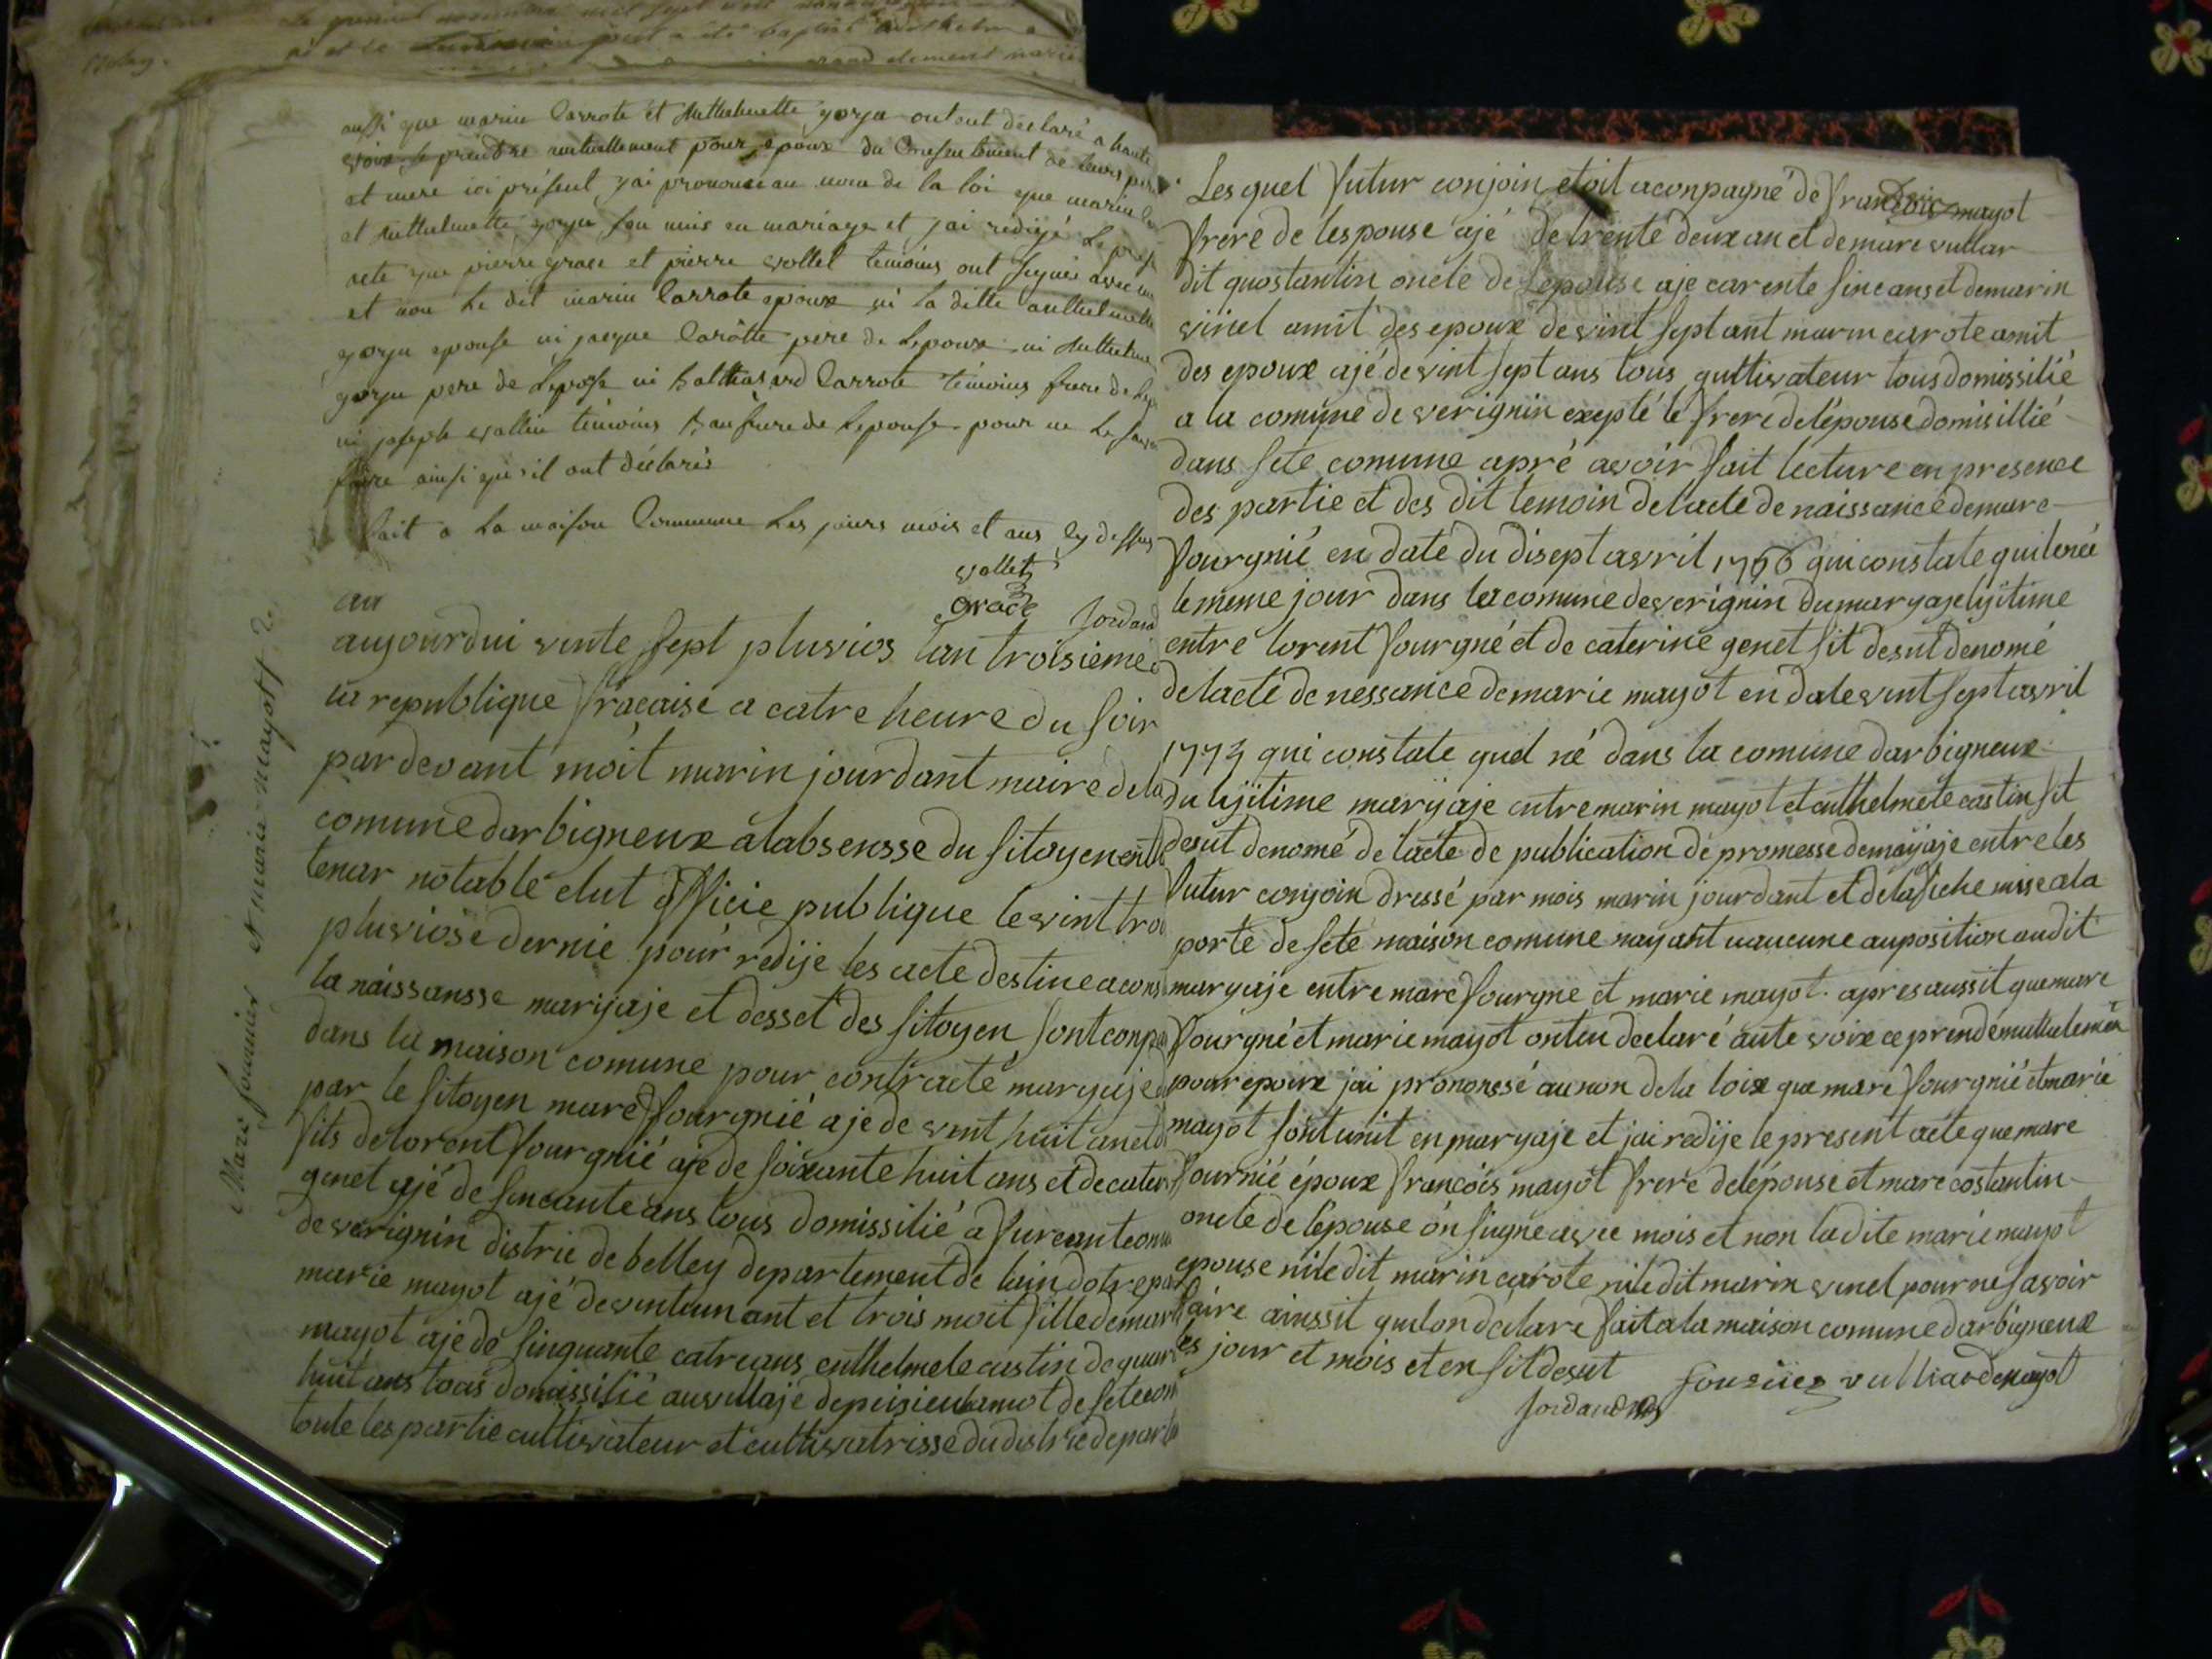 aussi que marin Carrote et Anthelmette gorju ont eut déclaré a haute
voix se prendre mutuellement pour epoux du Consentement de leurs per
et mere ici présent j'ai prononcé au nom de la loi que marin
et Anthelmette gorju son unis en mariage et j'ai rédigé Le pres
acte que pierre grace et pierre vollet témoins ont signé avec
et non Le dit marin Carrote epoux ni la ditte anthelmette
gorju epouse ni jacque Carotte pere de Lepoux ni Anthelme
gorju pere de Leposse ni balthasard Carrote témoins frere de
ni joseph vallin témoins beaufrere de Lepouse pour ne Le savoir
faire ainsi qu'il ont déclarés
fait a La maison Commune Les jours mois et ans cy dessus
vollet
Grace Jordan
au
aujourdui vinte sept pluvios lan troisieme
la republique fracaise a catre heure du soir
par devant moit marin jourdant maire de la
comune darbigneux a labsensse du sitoyen
tenar notable elut officie publique le vint
pluviose dernie pour redije les acte destine a
la naissansse maryaje et desset des sitoyen sont
dans la maison comune pour contracté maryaje
par le sitoyen marc fourgnié aje de vint huit an
fils de lorent fourgnié aje de soixante huit ans et de
genet ajé de sincante ans tous domissilié a
de verignin distric de belley departement de lain dotre
marie mayot ajé de vint un ant et trois moit fille de
mayot aje de sinquante catre ans enthelmete castin de
huit ans tous domissilié au vilaje de de sete
toute les partie cultivateur et cultivatrisse du distric
Marc fournier et marie mayot
Les quel futur conjoin etoit aconpagné de francois mayot
frere de lespouse ajé de trente deux an et de marc vullar
dit quostantin oncle de lepouse aje carente sinc ans et de marin
vinel amit des epoux de vint sept ant marin carote amit
des epoux ajé de vint sept ans tous qultivateur tous domissilié
a la comune de verignin exepté le frere de lépouse domisillié
dans sete comune apré avoir fait lecture en presence
des partie et des dit temoin de lacte de naissance de marc
fourgnié en date du disept avril 1766 qui constate quil
le meme jour dans la comune de verignin du maryaje lyitime
entre lorent fourgné et de caterine genet sit desut denomé
de lacte de nessance de marie mayot en date vint sept avril
1773 qui constate quel né dans la comune darbigneux
du lyitime maryaje entre marin mayot et enthelmete castin sit
desut denomé de lacte de publication de promesse de maryaje entre les
futur conjoin dressé par mois marin jourdant et de lafiche mise a la
porte de sete maison comune nayant uaucune auposition audit
maryaje entre marc fourgne et marie mayot. apres aussit que marc
fourgné et marie mayot onteu declaré aute voix ce prende
pour epoux jai prononssé au non de la loix que marc fourgnié et marie
mayot sont unit en maryaje et jai redije le present acte que marc
fournié époux francois mayot frere de lépouse et marc costantin
oncle de lépouse on signe avec mois et non ladite marie mayot
epouse ni le dit marin carote ni le dit marin vinel pour ne savoir
faire ainssit quelon déclare fait a la maison comune darbigneux
les jour et mois et en sit desut fournier vulliard mayot
Jordan